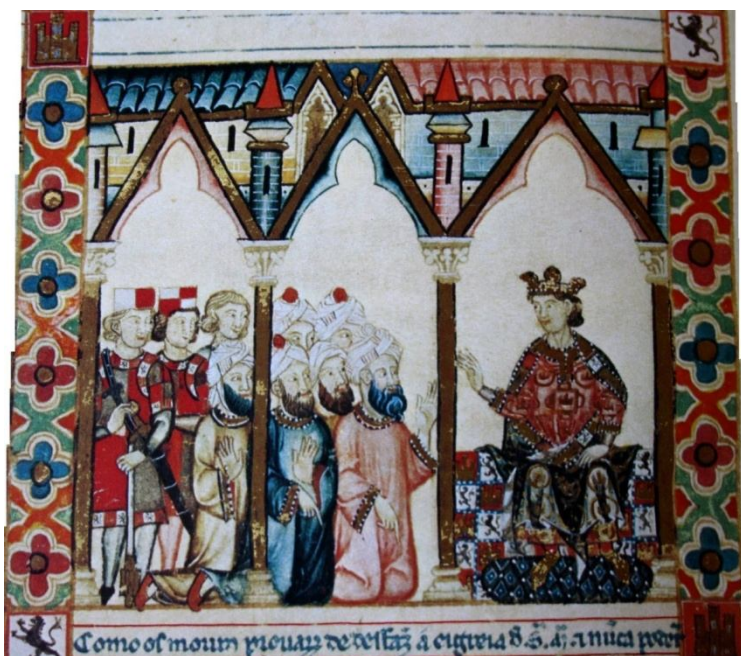 Como os mouros prouarõ de desfaz̃ a eigreia d. S. M̃. ⁊ nũca poderõ